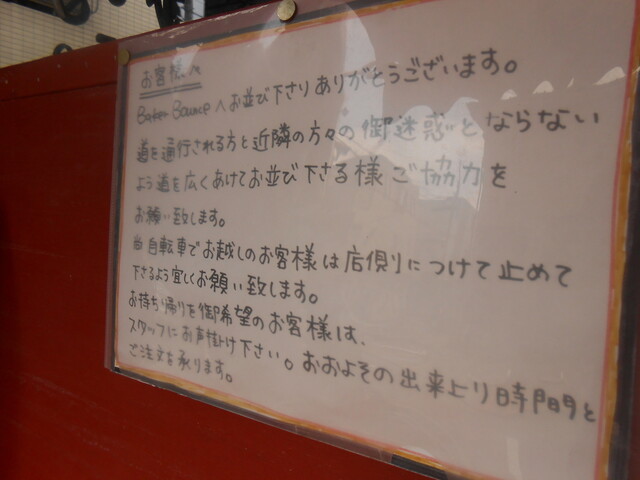 お客様へ
Baker Bounceへお並び下さりありがとうございます。
道を通行される方と近隣の方々の御迷惑とならない
よう道を広くあけてお並び下さる様ご協力を
お願い致します。
自転車でお越しのお客様は店側につけて止めて
下さるよう宜しくお願い致します。
お持ち帰りを御希望のお客様は、
スタッフにお声掛け下さい。おおよその出来上り時間と
ご注文を承ります。